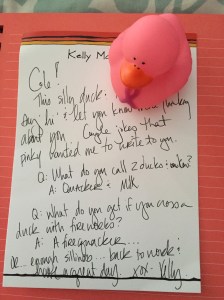 Kelly Mc
Cole!
This silly duck
say hi & let you know I'm thinking
about you. Couple jokes that
pinky wanted me to write to you.
Q: What do you call 2 ducks &
A: Quackers & Milk
Q: What do you get if you cross a
duck with fireworks?
A: A firequacker...
ok... enough silliness... back to work &
have a great day. xox. Kelly